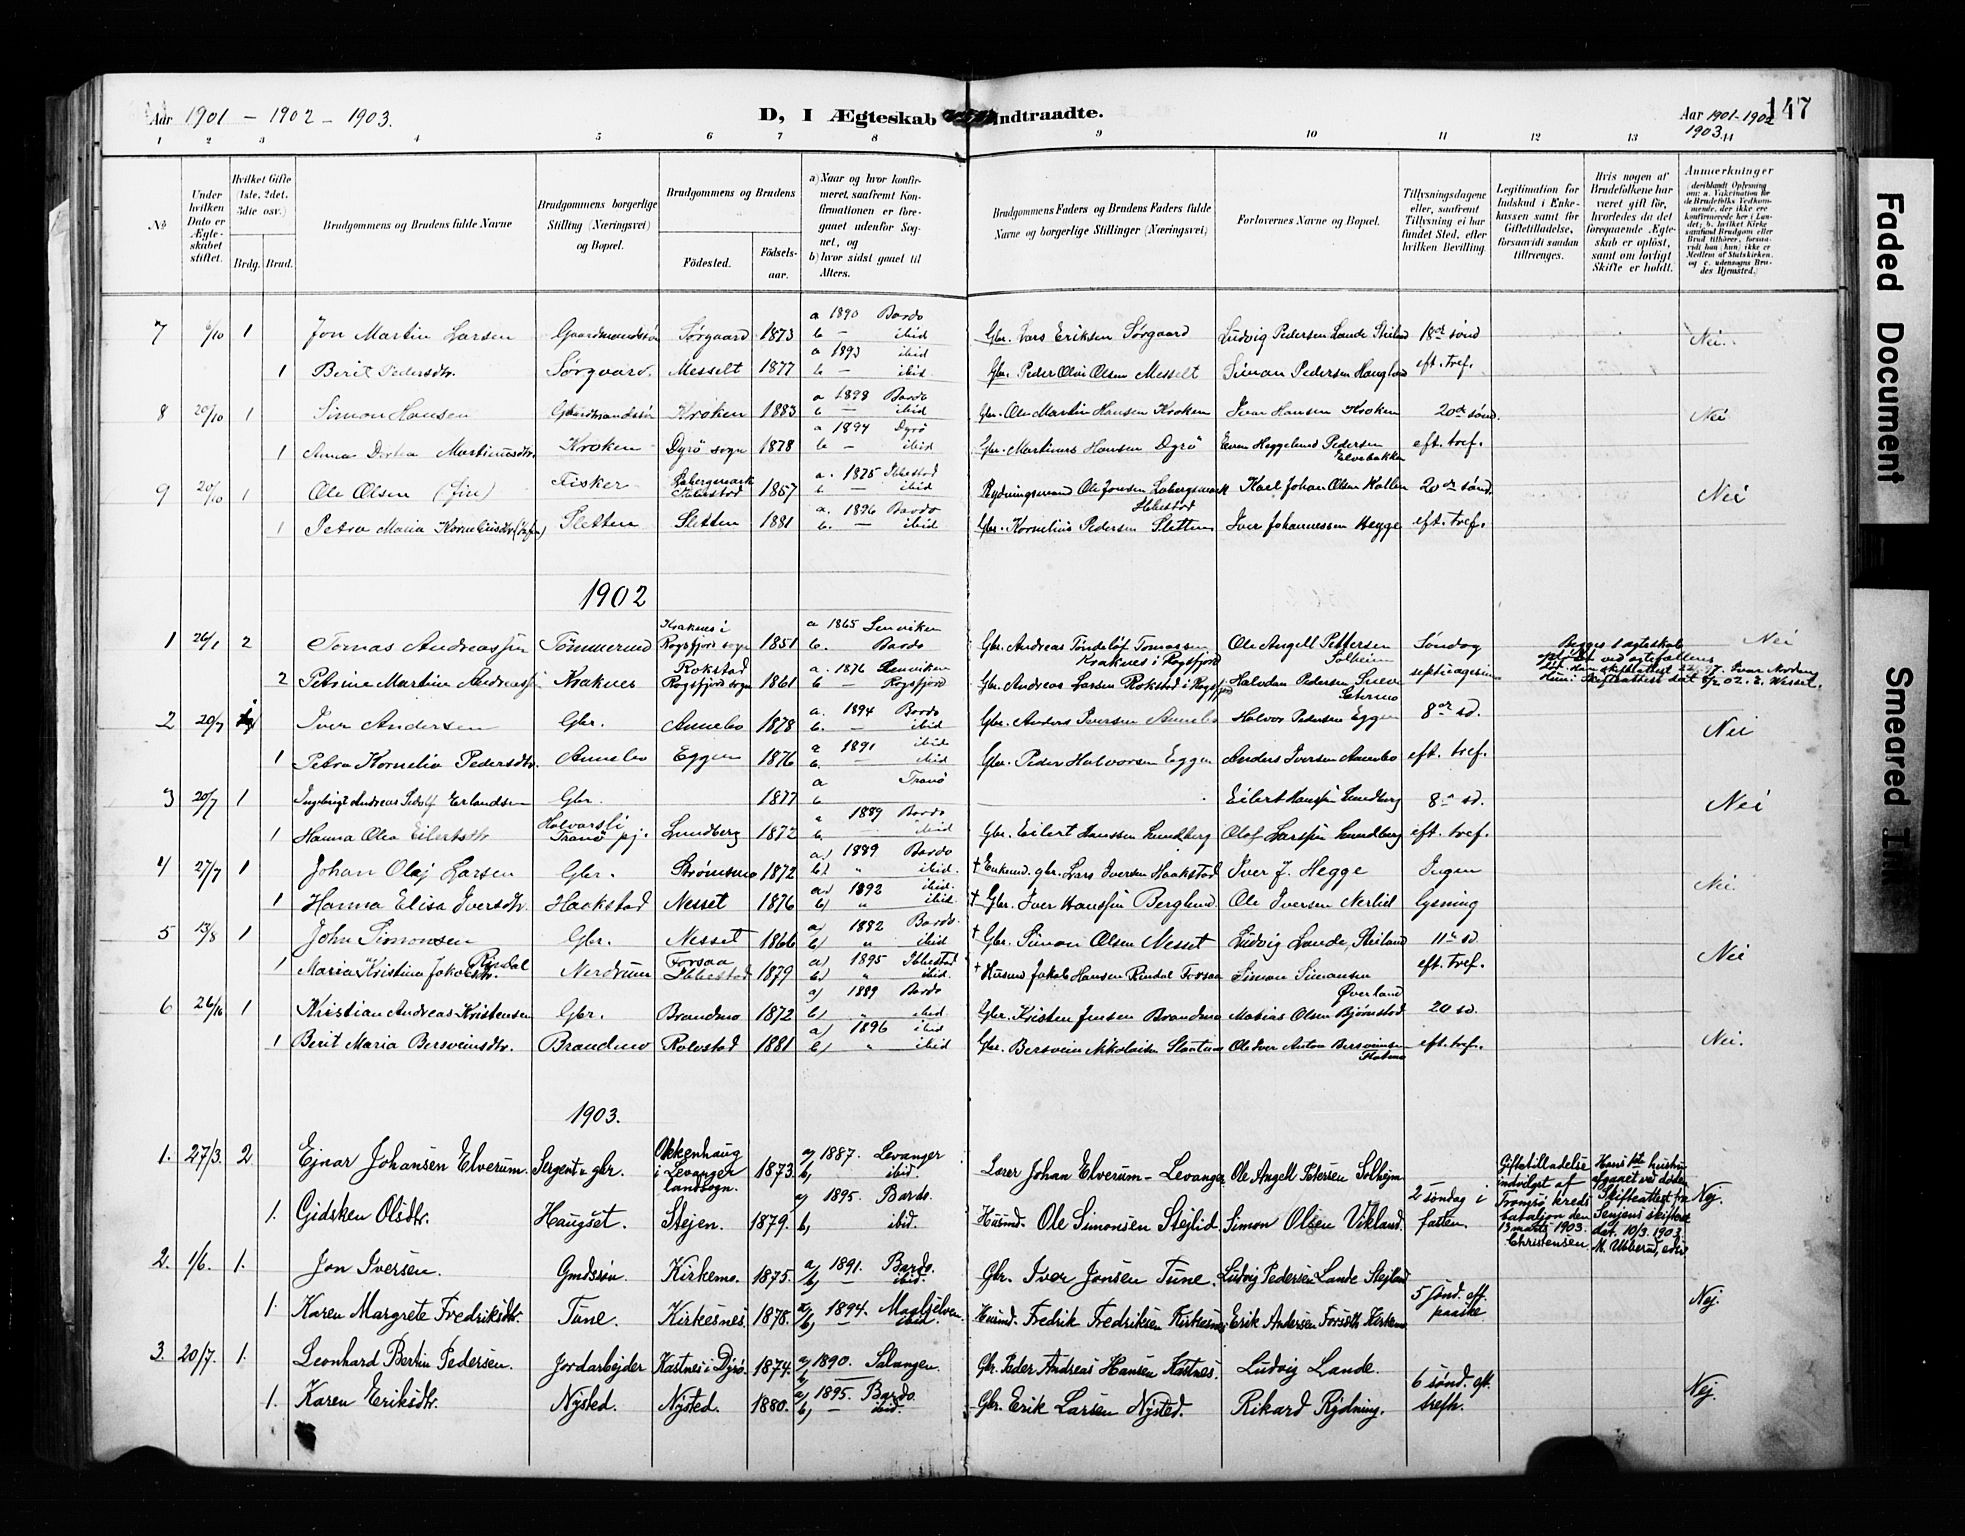 Aar 1901 - 1902 - 1903.
D, I Ægteskab Indtraadte.
Aar 1901-1902
1903.
147
1 2 3 4 5 6 7 8 9 10 11 12 13 14
№
Under hvilken Dato er Ægteskabet stiftet.
Hvilket Gifte (1ste, 2det, 3die osv.)
Brdg. Brud.
Brudgommens og Brudens fulde Navne
Brudgommens borgerlige Stilling (Næringsvei) og Bopæl.
Brudgommens og Brudens
Fødested.
Fødselsaar.
a) Naar og hvor konfirmeret, saafremt Konfirmationen er foregaaet udenfor Sognet, og
b) hvor sidst gaaet til Alters.
Brudgommens Faders og Brudens Faders fulde Navne og borgerlige Stillinger (Næringsvei)
Forlovernes Navne og Bopæl.
Tillysningsdagene eller, saafremt Tillysning ei har fundet Sted, efter hvilken Bevilling
Legitimation for Indskud i Enkekassen samt for Giftetilladelse, forsaavidt saadan tiltrænges.
Hvis nogen af Brudefolkene har været gift før, hvorledes da det foregaaende Ægteskab er opløst, samt om lovligt Skifte er holdt.
Anmærkninger
7 6/10 1 Jon Martin Larsen Gaardmandssøn Sørgaard 1873 a 1890 Bardo b — ibid Gbr. Lars Eriksen Sørgaard Ludvig Pedersen Lande Steiland 18de sønd Nei.
1 Berit Pedersdtr. Sørgaard. Messelt 1877 a 1893 ibid b — ibid Gbr. Peder Olai Olsen Messelt Simon Pedersen Hauglid eft. tref.
8 20/10 1 Simon Hansen Gaardmandssøn Kroken 1883 a 1898 Bardo b — ibid Gbr. Ole Martin Hansen Kroken Ivar Hansen Kroken 20de sønd. Nei
1 Anna Dortea Martinusdtr. Kroken Dyrø sogn 1878 a 1894 Dyrø b — ibid Gbr. Martinus Hansen Dyrø Even Heggelund Pedersen Elvebakken eft. tref.
9 20/10 1 Ole Olsen (fin) Fisker Labergsmark Ibbestad 1857 a. 1875 Ibbestad b — ibid Rydningsmand Ole Jonsen Labergsmark Ibbestad Karl Johan Olsen Kollen 20de sønd. Nei
1 Petra Maria Korneliusdtr Sletten Sletten 1881 a. 1896 Bardo b. — ibid Gbr. Kornelius Pedersen Sletten Iver Johannessen Hegge eft. tref.
1902
1 26/1 2 Tomas Andreassen Tømmermd Kraknes i Rogsfjord sogn 1851 a 1865 Lenviken b. Bardo Gbr. Andreas Tomassen Kraknes i Rogsfjord Ole Angell Pettersen Solheim Søndag Nei
2 Petrine Martine Kraknes Rokstad Rogsfjord sogn 1861 a. 1876 Lenviken b — Rogsfjord Gbr. Andreas Larsen Rokstad i Rogsfjord Halvdan Pedersen septuagesima
Begges 1 ægteskab opløst ved ægtefællens død.
2 20/7 1 Iver Andersen Gbr. Annebo 1878 a. 1894 Bardo b. — ibid Gbr. Anders Iversen Annebo Halvor Pedersen Eggen 8de sd. Nei
1 Petra Kornelia Pedersdtr. Annebo Eggen 1876 a 1891 ibid b. — ibid Gbr. Peder Halvorsen Eggen Anders Iversen Annebo eft. tref.
3 20/7 1 Ingebrigt Andreas Erlandsen Gbr. 1877 a Tranø b Eilert Hanssen Lundberg 8de sd. Nei
1 Hanna Olea Eilertsdtr Tranø pgj. Lundberg 1872 a 1889 Bardo b. ibid Gbr. Eilert Hanssen Lundberg Olaf Larssen Lundberg eft. tref.
4 27/7 1 Johan Olaj Larsen Gbr. Strømsmo 1872 a) 1889 Bardo b) " ibid. † gbr. Lars Iversen Haakstad Iver J. Hegge Ingen Nei.
1 Hanna Elisa Iversdtr. Haakstad Nesset 1876 a) 1892 ibid. b) " ibid. † Gbr. Iver Hanssen Berglund Ole Iversen Nerlid lysning
5 13/8 1 John Simonsen Gbr. Nesset 1866 a) 1882 Bardo. b) " ibid † Gbr. Simon Olsen Nesset Ludvig Lande, Steiland 11te sd Nei
1 Maria Kristina Jakobsdtr. Rindal Nerdrum Forsaa Ibbestad 1879 a) 1895 Ibbestad b) " ibid. † Husmd Jakob Hansen Rindal Forsaa Simon Simonsen Øverland eft. tref.
6 26/10 1 Kristian Andreas Kristensen Gbr. Brandmo 1872 a) 1889 Bardo b) " ibid Gbr. Kristen Jensen Brandmo Matias Olsen Bjørnstad 20 sd. Nei.
1 Berit Maria Bersveinsdtr. Brandmo Rolvstad 1881 a) 1896 ibid b) " ibid Gbr. Bersvein Nikolaisen Slaatmo Ole Iver Anton Bersveinsen eft. tref.
1903.
1. 27/3. 2 Ejnar Johansen Elverum. Sergent & gbr. Okkenhaug i Levanger landsogn. 1873. a) 1887. Levanger b) ibid. Lærer Johan Elverum - Levanger Ole Angell Petersen Solhejm 2 søndag i fasten. Nej.
1. Gidsken Olsdtr. Haugset. Stejen. 1879. a) 1895. Bardo. b) ibid. Husmd. Ole Simonsen Stejlid. Simon Olsen Vikland.
Giftetilladelse indvilget af Tromsø kreds bataljon den 13 marts 1903. Christensen.
Hans 1ste hustru afgaaet ved døden. Skifteattest fra Senjens skifteret dat. 10/3. 1903.
2. 1/6. 1. Jon Iversen. Gmdssøn. Kirkemo. 1875. a) 1891. Bardo. b) — ibid. Gbr. Iver Jonsen Tune. Ludvig Pedersen Lande Stejland 5 sønd. eft. paaske Nej.
1. Karen Margrete Fredriksdtr. Tune. Kirkesnes. 1878. a) 1894. Maalselven. b) — ibid. Husmd. Fredrik Fredriksen Kirkesnes Erik Andersen Forseth Kirkemo
3. 20/7. 1. Leonhard Bertin Pedersen. Jordarbejder Kastnes i Dyrø. 1874. a) 1890. Salangen. b) Gbr. Peder Andreas Hansen Kastnes. Ludvig Lande. 6 sønd. eft. trefh. Nej.
1. Karen Eriksdtr. Nysted. Nysted. 1880. a) 1895. Bardo. b) — ibid. Gbr. Erik Larsen Nysted. Rikard Rydning.
Faded Document
Smeared Ink